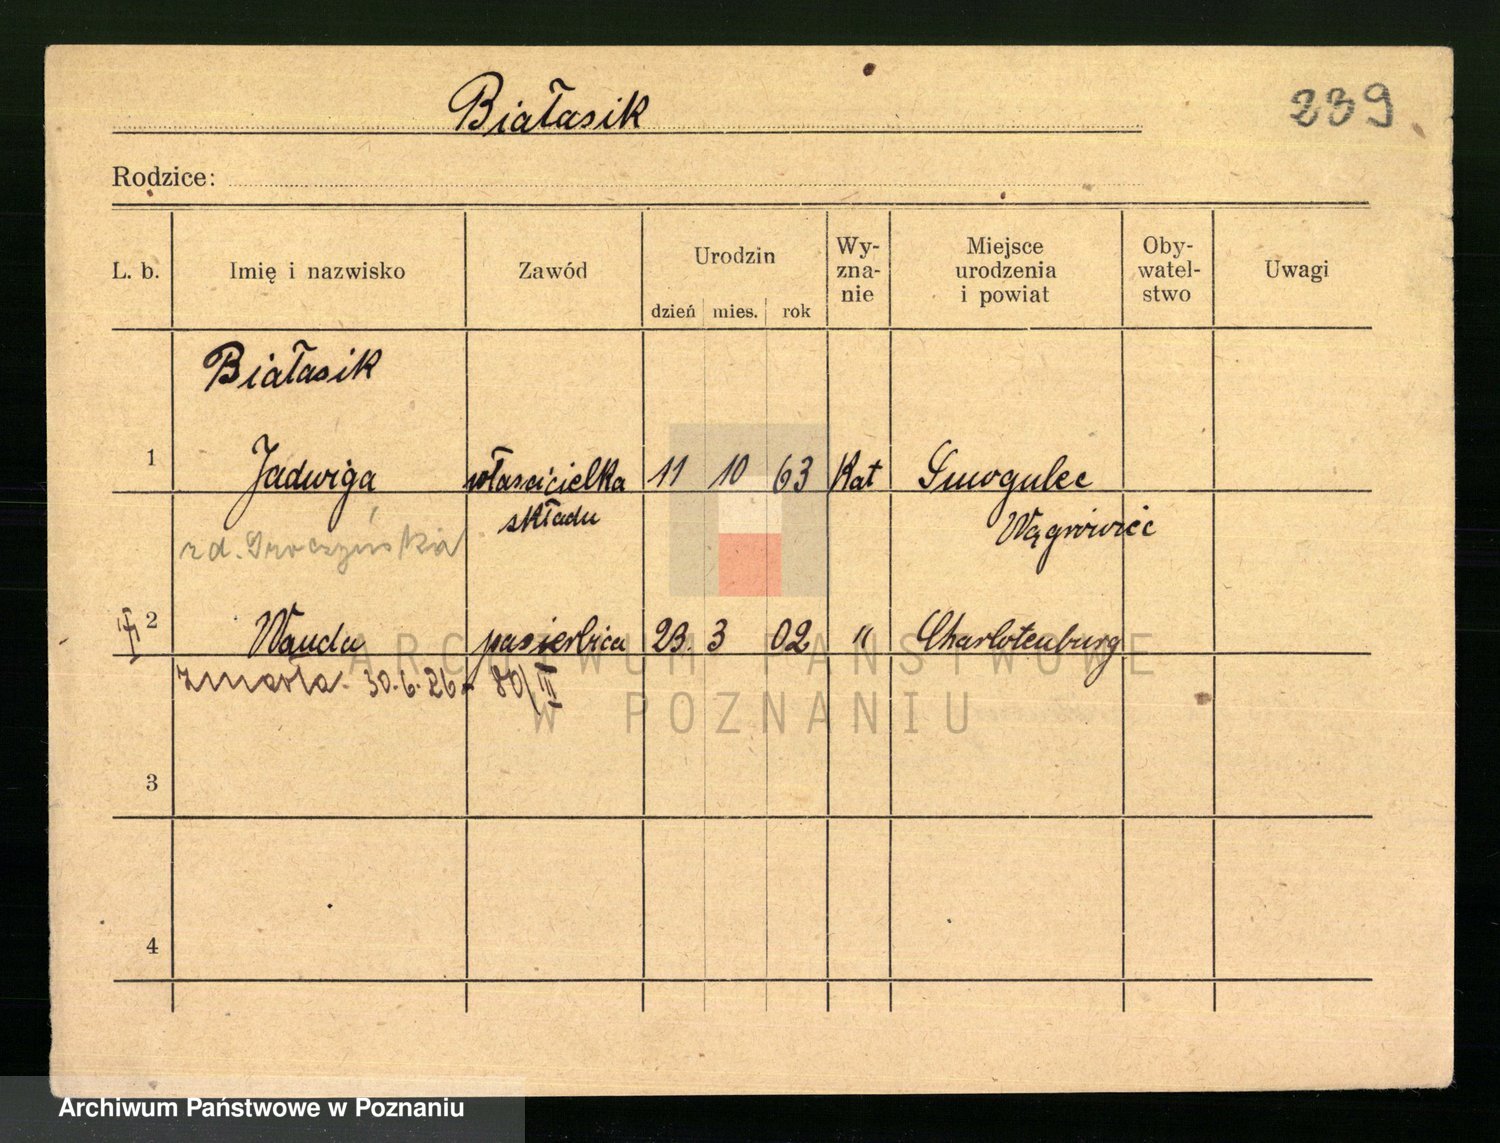 Białasik
239
Rodzice:
L. b.
Imię i nazwisko
Zawód
Urodzin
dzień
mies.
rok
Wy-
zna-
nie
Miejsce
urodzenia
i powiat
Oby-
watel-
stwo
Uwagi
Białasik
1 Jadwiga właścicielka 11 10 63 Kat Smogulec
składu Wągrówiéc
rd.
2 Wanda pasierbica 23. 3 02 " Charlotenburg
zmarła. 30.6.26. 80/III
3
4
ARCHIWUM PAŃSTWOWE
W POZNANIU
Archiwum Państwowe w Poznaniu